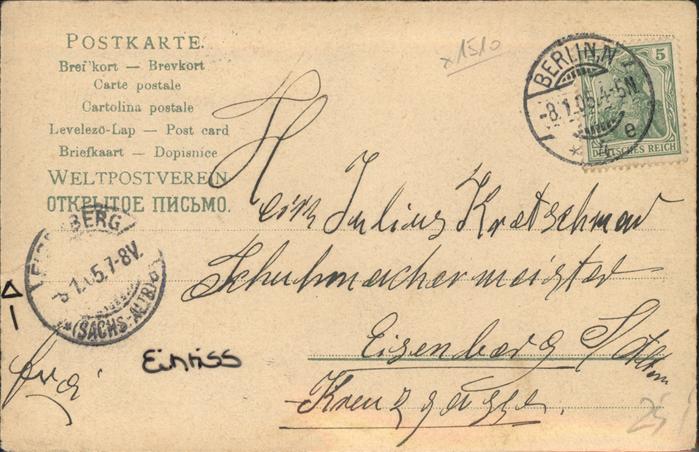 POSTKARTE.
Bref'kort — Brevkort
Carte postale
Cartolina postale
Levelező-Lap — Post card
Briefkaart — Dopisnice
WELTPOSTVEREIN
ОТКРЫТОЕ ПИСЬМО.
x1510
BERLIN.N
-8.1.05.4-5N.
* 4 e
5
DEUTSCHES REICH
BERG
5.7-8V.
*(SACHS.-ALTB.)
H
Julius Kretschmar
Schuhmachermeister
Eisenberg S/Altbn
Kreuzgasse.
frei
Einriss
25